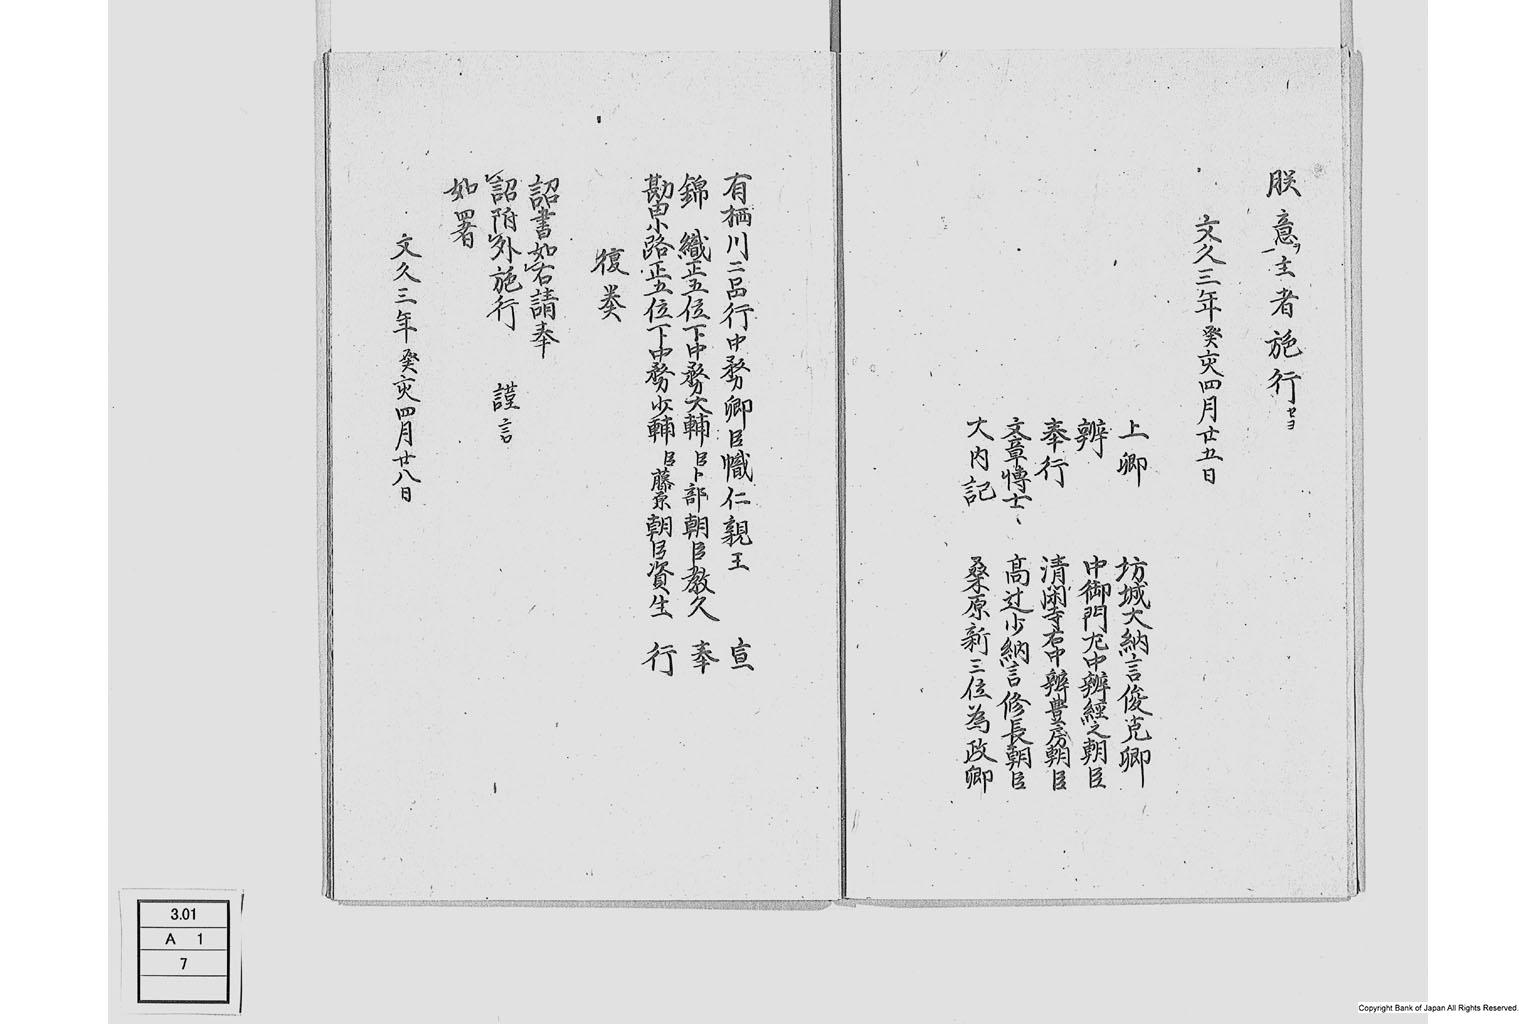 朕意ヲ主者施行セヨ
文久三年癸亥四月廿五日
上卿 坊城大納言俊克卿
辨 中御門左中辨經之朝臣
奉行 清閑寺右中辨豊房朝臣
文章博士 高辻少納言修長朝臣
大内記 桑原新三位為政卿
有栖川二品行中務卿臣幟仁親王 宣
錦織正五位下中務大輔臣卜部朝臣教久 奉
勘由小路正五位下中務少輔臣藤原朝臣資生 行
復奏
詔書如右請奉
詔附外施行 謹言
如署
文久三年癸亥四月廿八日
3.01
A 1
7
Copyright Bank of Japan All Rights Reserved.